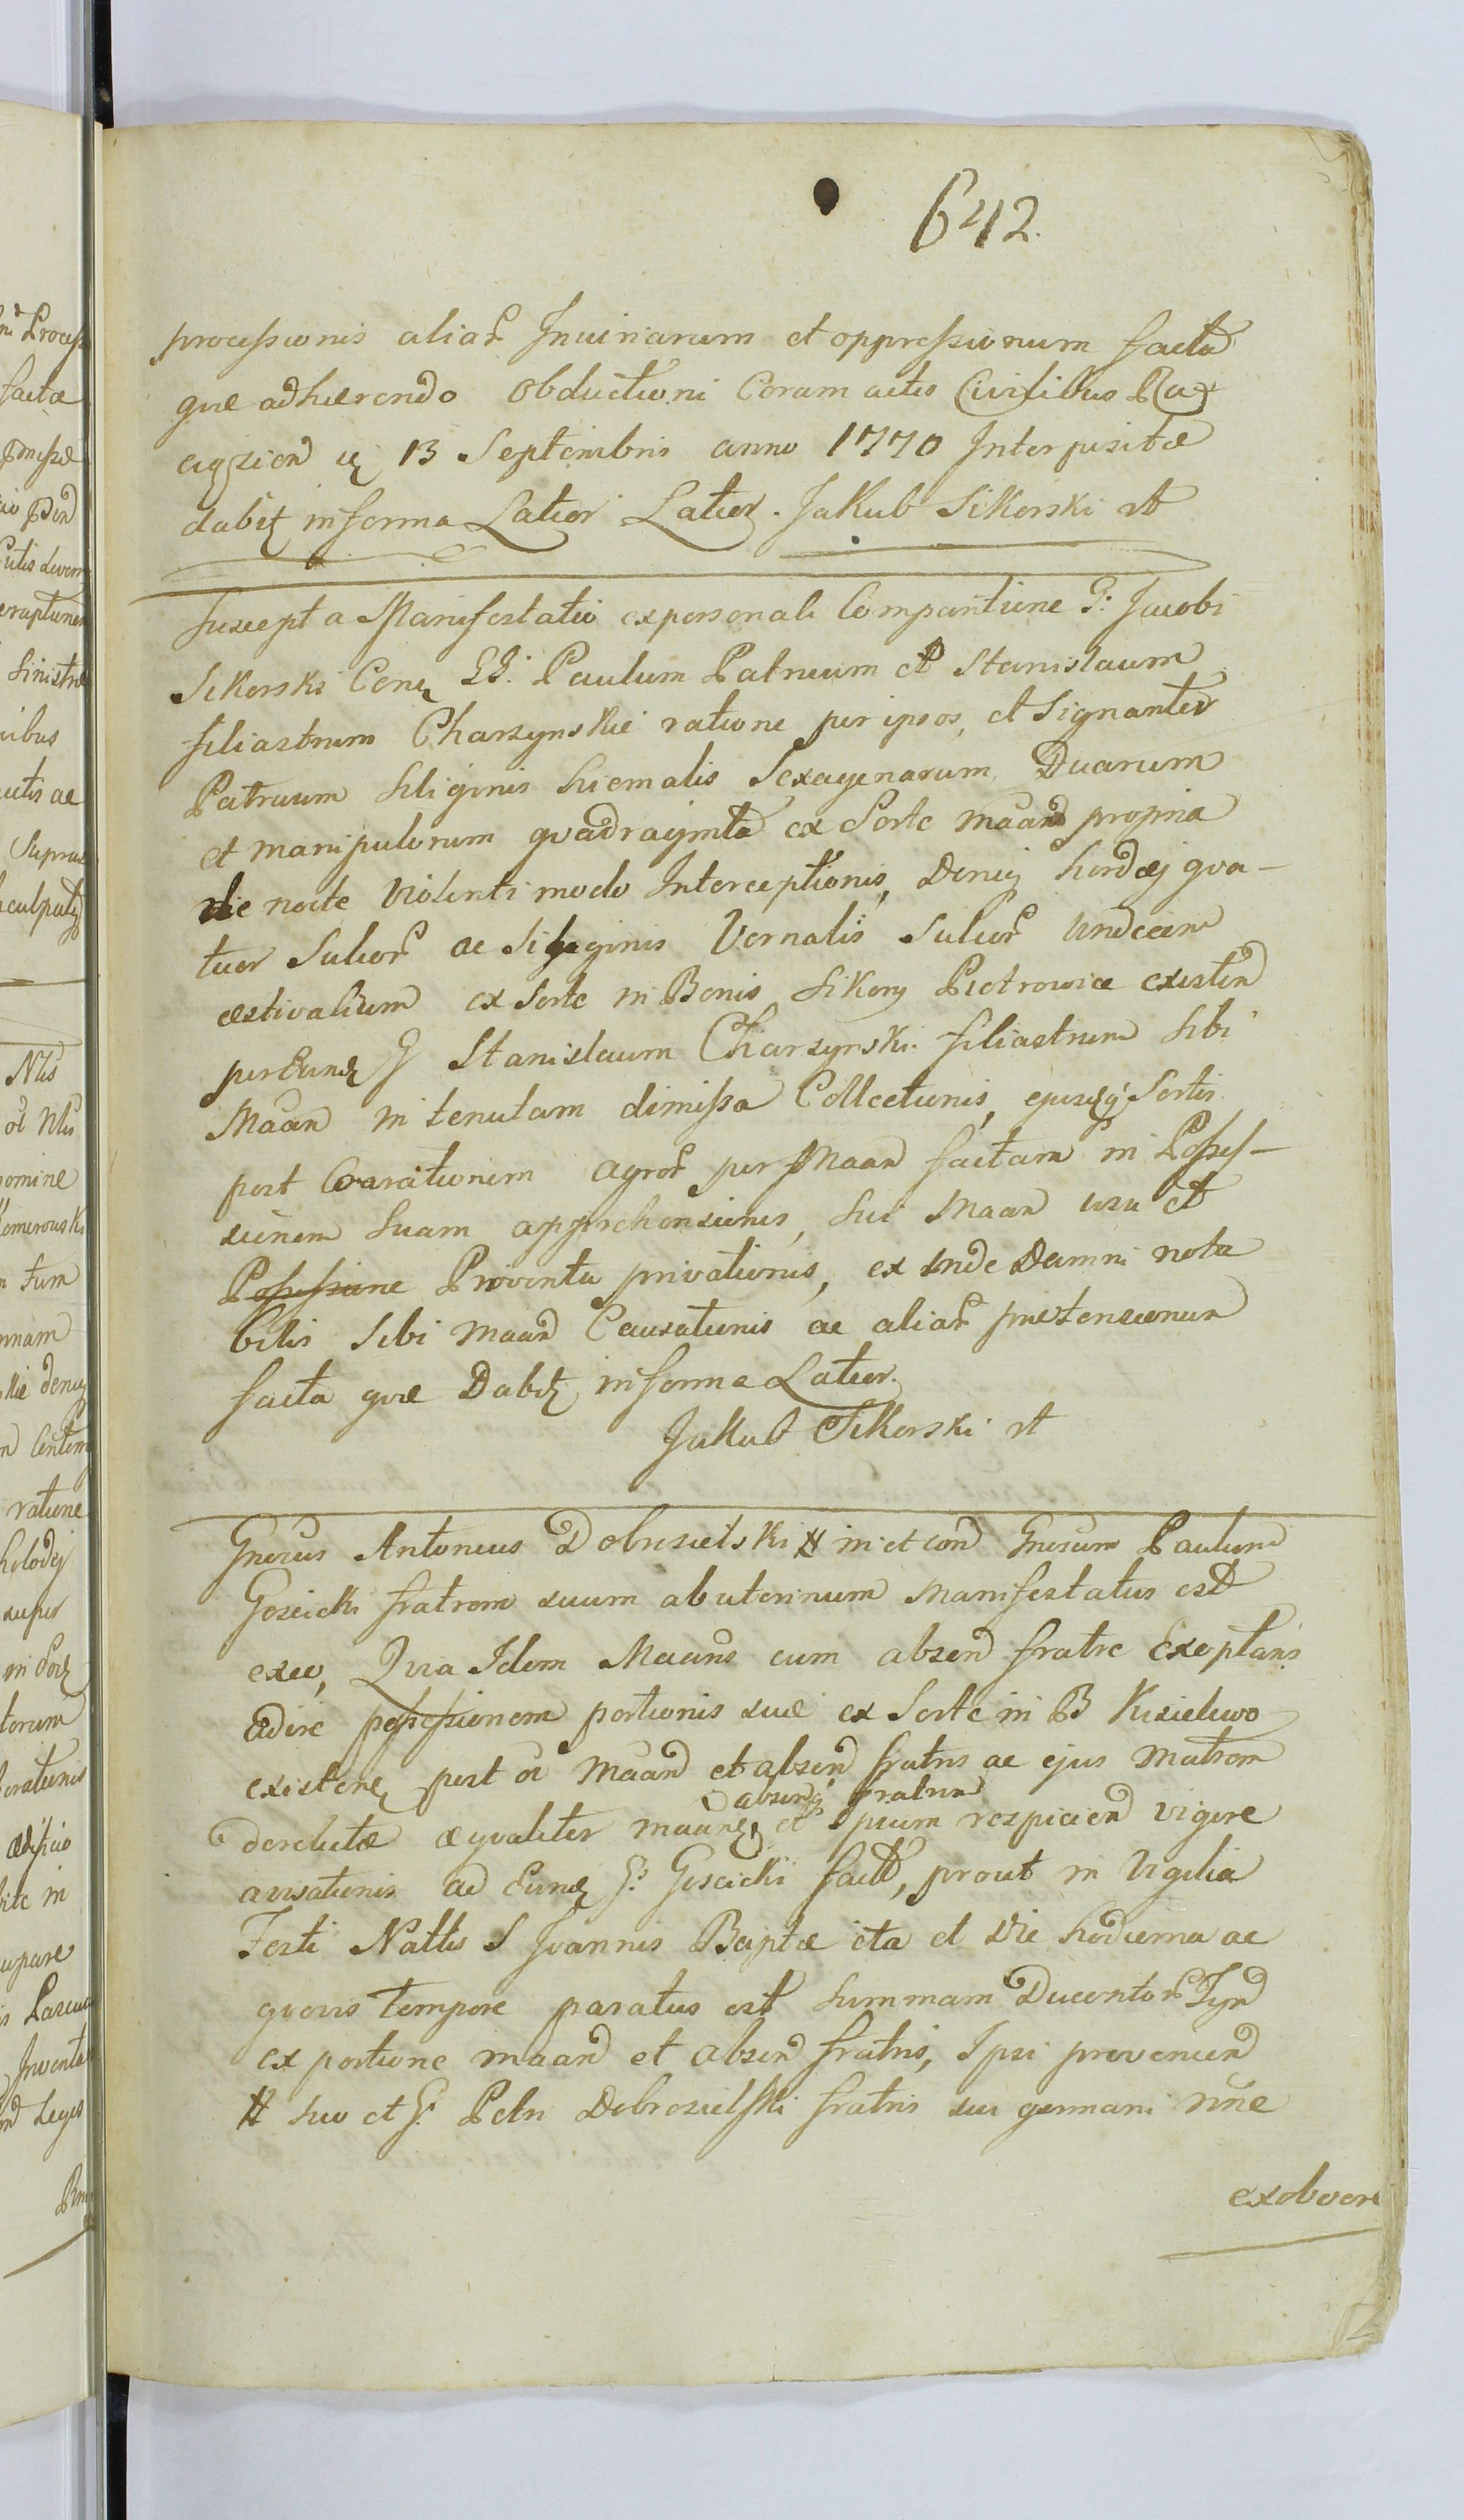 642.
processionis aliar Iniuriarum et oppressionum facta
que adhærendo obductioni Coram actis Civilibus Rac
ciązien 13 Septembris anno 1770 Interpositæ
dabit in forma Latior Latior. Jakub Sikorski
Suscepta Manifestatio ex personali Comparitione G: Jacobi
Sikorski Con GG: Paulum Patruum et Stanislaum
filiastrum Charzynskie ratione per ipsos, et signanter
Patruum siliginis hiemalis Sexagenarum Duarum
et manipulorum qvadraginta ex Sorte maan propria
die nocte violenti modo Interceptionis, Deniq hordej qva-
tuor Sulcor ac Siliginis Vernalis Sulcor undecim
æstivalium ex Sorte in Bonis Sikory Pietrowice existen
per Eund G Stanislaum Charzynski filiastrum sibi
Maan in tenutam dimissa Collectionis, ejusq Sortis
post Exarationem agror per Maan factam in Posses-
sionem suam apprehensionis, sui Maan usu et
Possessione Proventu privationis, ex inde Damni nota
bilis sibi maan Causationis ac aliar prætensionum
facta qvæ Dabit in forma Latior.
Jakub Sikorski
Gnosus Antonius Dobrosielski # in et con Gnosum Paulum
Gosicki fratrem suum ab uterinum manifestatus est
ex eo, Quia Idem Maans cum absen fratre Exoptans
adire possessionem portionis suæ ex Sorte in B Kisielewo
existen post Maan et absen fratris ac ejus Matrem
absenq fratrem
derelictæ æqvaliter maanem et Ipsum respicien vigore
avisationis ad Eund G: Gosicki fact, prout in Vigilia
Festi Nattis S Joannis Baptæ ita et die hodierna ac
qvovis tempore paratus est summam Ducentor Tyn
ex portione maan et absen fratris, Ipsi provenien
# suo et G: Petri Dobrosielski fratris sui germani nne